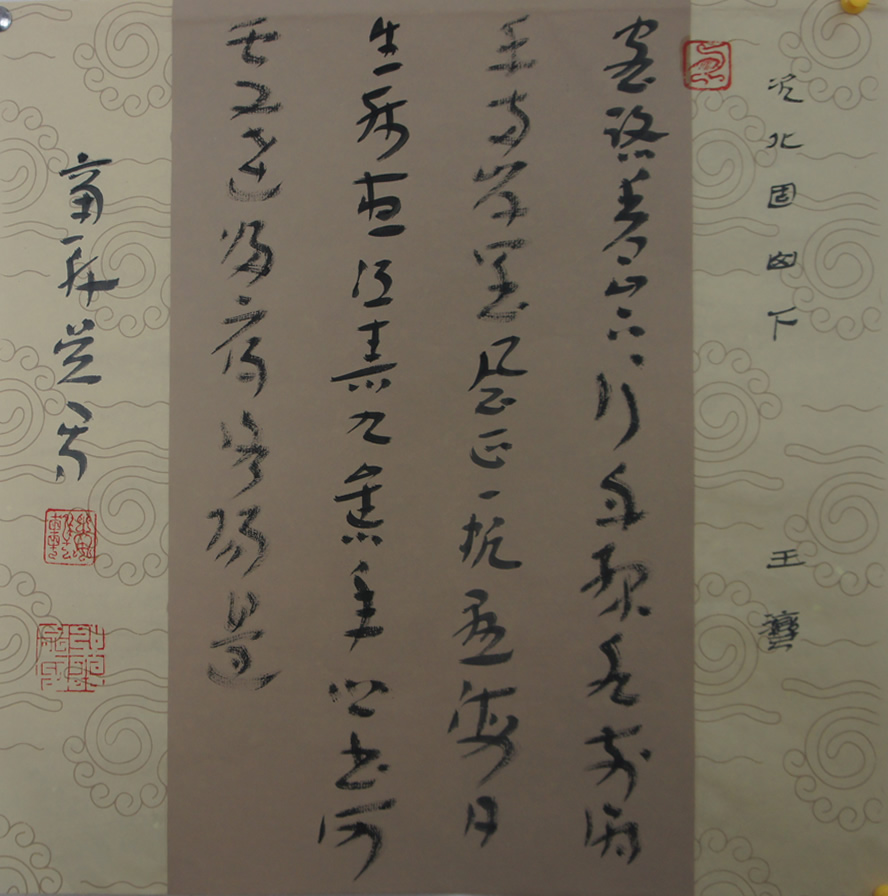 次北固山下 王灣
客路青山下行舟綠水前潮
平兩岸闊風正一帆懸海日
生殘夜江春入舊年鄉書何
處達歸雁洛陽邊